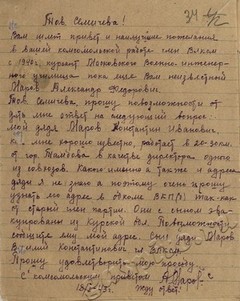 34
Тов Селичева!
Вам шлет привет и наилучшие пожелания
в вашей комсомольской работе член ВЛКСМ
с 1940г. курсант Московского Военно-инженер-
ного училища пока еще Вам неизвестный
Шаров Александр Федорович.
Тов Селичева, прошу по возможности от
дать мне ответ на следующий вопрос:
мой дядя Шаров Константин Иванович,
мне хорошо известно, работает в 20-30км.
от гор Тамбова в качестве директора одного
из совхозов. Какого именно а также и адреса
дяди я не знаю а поэтому очень прошу
узнать его адрес в обкоме ВКП(б) так-как
он старый член партии. Они с сыном эва-
куированы из Курской обл. По возможности
сообщите ему мой адрес. Сын дяди Шаров
Константинович чл ВЛКСМ.
Прошу удовлетворить мою просьбу.
С комсомольским приветом АШаров
Жду ответ!